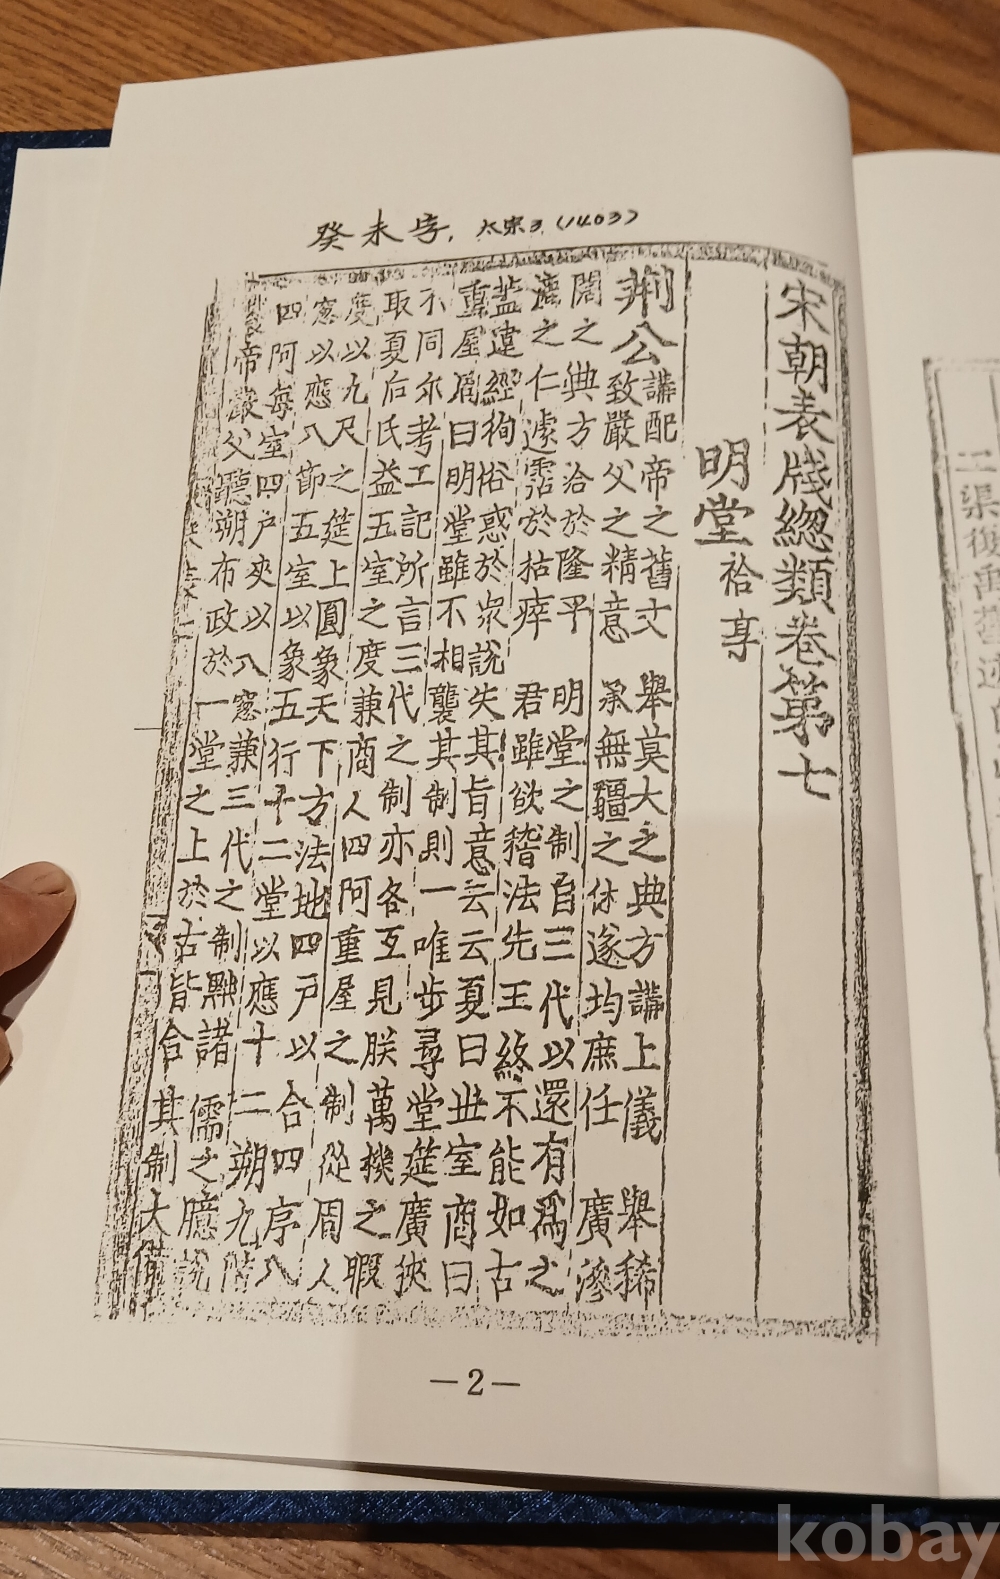 癸未字, 太宗3 (1403)
宋朝表牋緫類卷第七
明堂 祫享
荆公
講配帝之舊文 舉莫大之典方講上儀 舉稀
致嚴父之精意 承無疆之休遂均庶任 廣滲
闊之典方洽於隆平 明堂之制自三代以還有爲之
漉之仁遽霑於枯瘁 君雖欲稽法先王終不能如古
盖違經徇俗惑於衆說失其旨意云云夏曰世室商曰
重屋周曰明堂雖不相襲其制則一唯步尋堂筵廣狹
不同尔考工記所言三代之制亦各互見朕萬機之暇
取夏后氏益五室之度兼商人四阿重屋之制從周人
度以九尺之筵上圓象天下方法地四戶以合四序八
窓以應八節五室以象五行十二堂以應十二朔九階
四阿每室四戶夾以八窓兼三代之制黜諸儒之臆說
帝嚴父聽朔布政於一堂之上於古皆合其制大備
— 2 —
二渠復禹舊迹
kobay